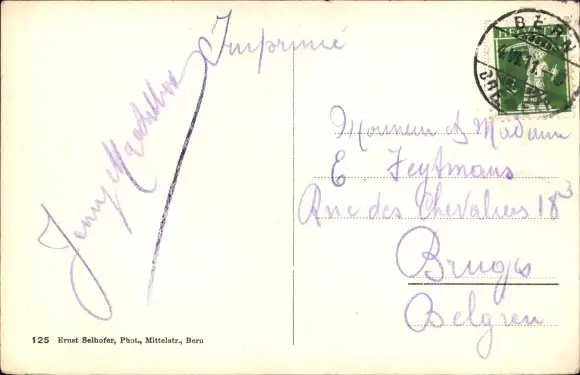 Imprimé
BERN
HELVETIA
Monsieur & Madame
E. Feytmans
Rue des Chevaliers 18
Bruges
Belgien
Jenny
125 Ernst Selhofer, Phot., Mittelstr., Bern